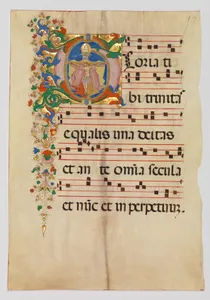 Gloria ti
bi trinitas
equalis una deitas
et an te omnia secula
et nunc et in perpetuum.